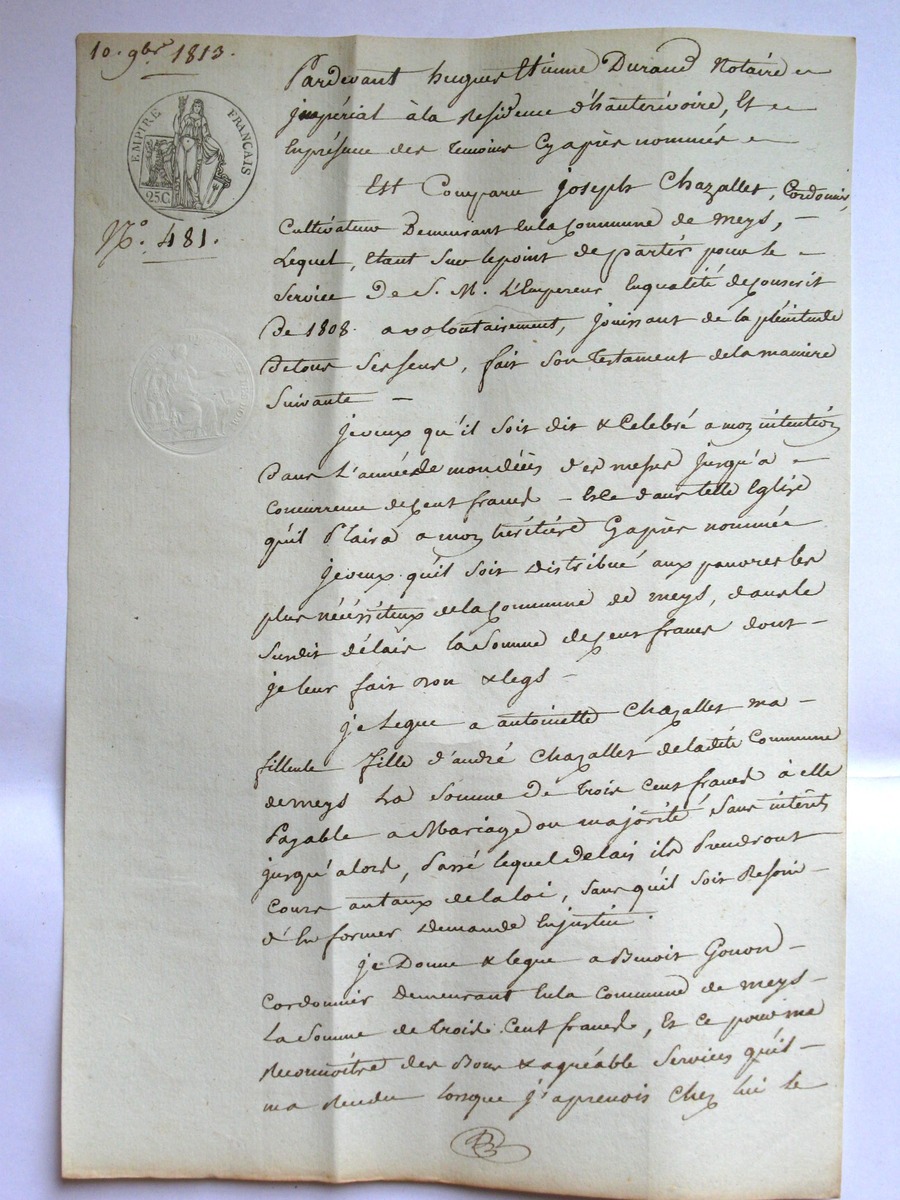 10. 9bre 1813.
EMPIRE FRANÇAIS
25C
No. 481.
Pardevant hugues Etienne Durand Notaire
jmpérial à la Residence d'hauterivoire, Et
En présence des temoins Cyaprès nommés
Est Comparu joseph Chazallet, Cordonier,
Cultivateur Demeurant En la Commune de meys,
Lequel, Etant sur le point de partir pour le
Service De S. M. L'Empereur En qualité de Conscrit
De 1808. a volontairement, jouissant de la plénitude
De tous Ses Sens, fait Son testament de la maniere
Suivante
je veux qu'il soit dit & Celebré a mon intention
Dans L'année de mon décès des messes jusqu'a
Concurrence de Cent francs Et Ce dans telle Eglise
qu'il Plaira a mon héritière Cyaprès nommée
je veux qu'il soit distribué aux pauvres les
plus nécéssiteux de la Commune de meys, dans le
Susdit délais la Somme de Cent francs dont
je leur fait Don & legs
je Legue a antoinette Chazallet ma
filleule fille d'andré Chazallet de la dite Commune
de meys La Somme De trois Cent francs à elle
Payable a Mariage ou majorité Sans intérêts
jusqu'alors, Passé lequel Delais ils Prendront
Cours au taux de la loi, Sans qu'il soit Besoin
d'En former Demande En justice.
je Donne & legue a Benoit Gonon
Cordonnier Demeurant En la Commune de meys
La Somme de trois Cent francs, Et Ce pour me
Reconnoitre des Bons & agréable Services qu'il
m'a Rendu lorsque j'aprenois Chez lui le